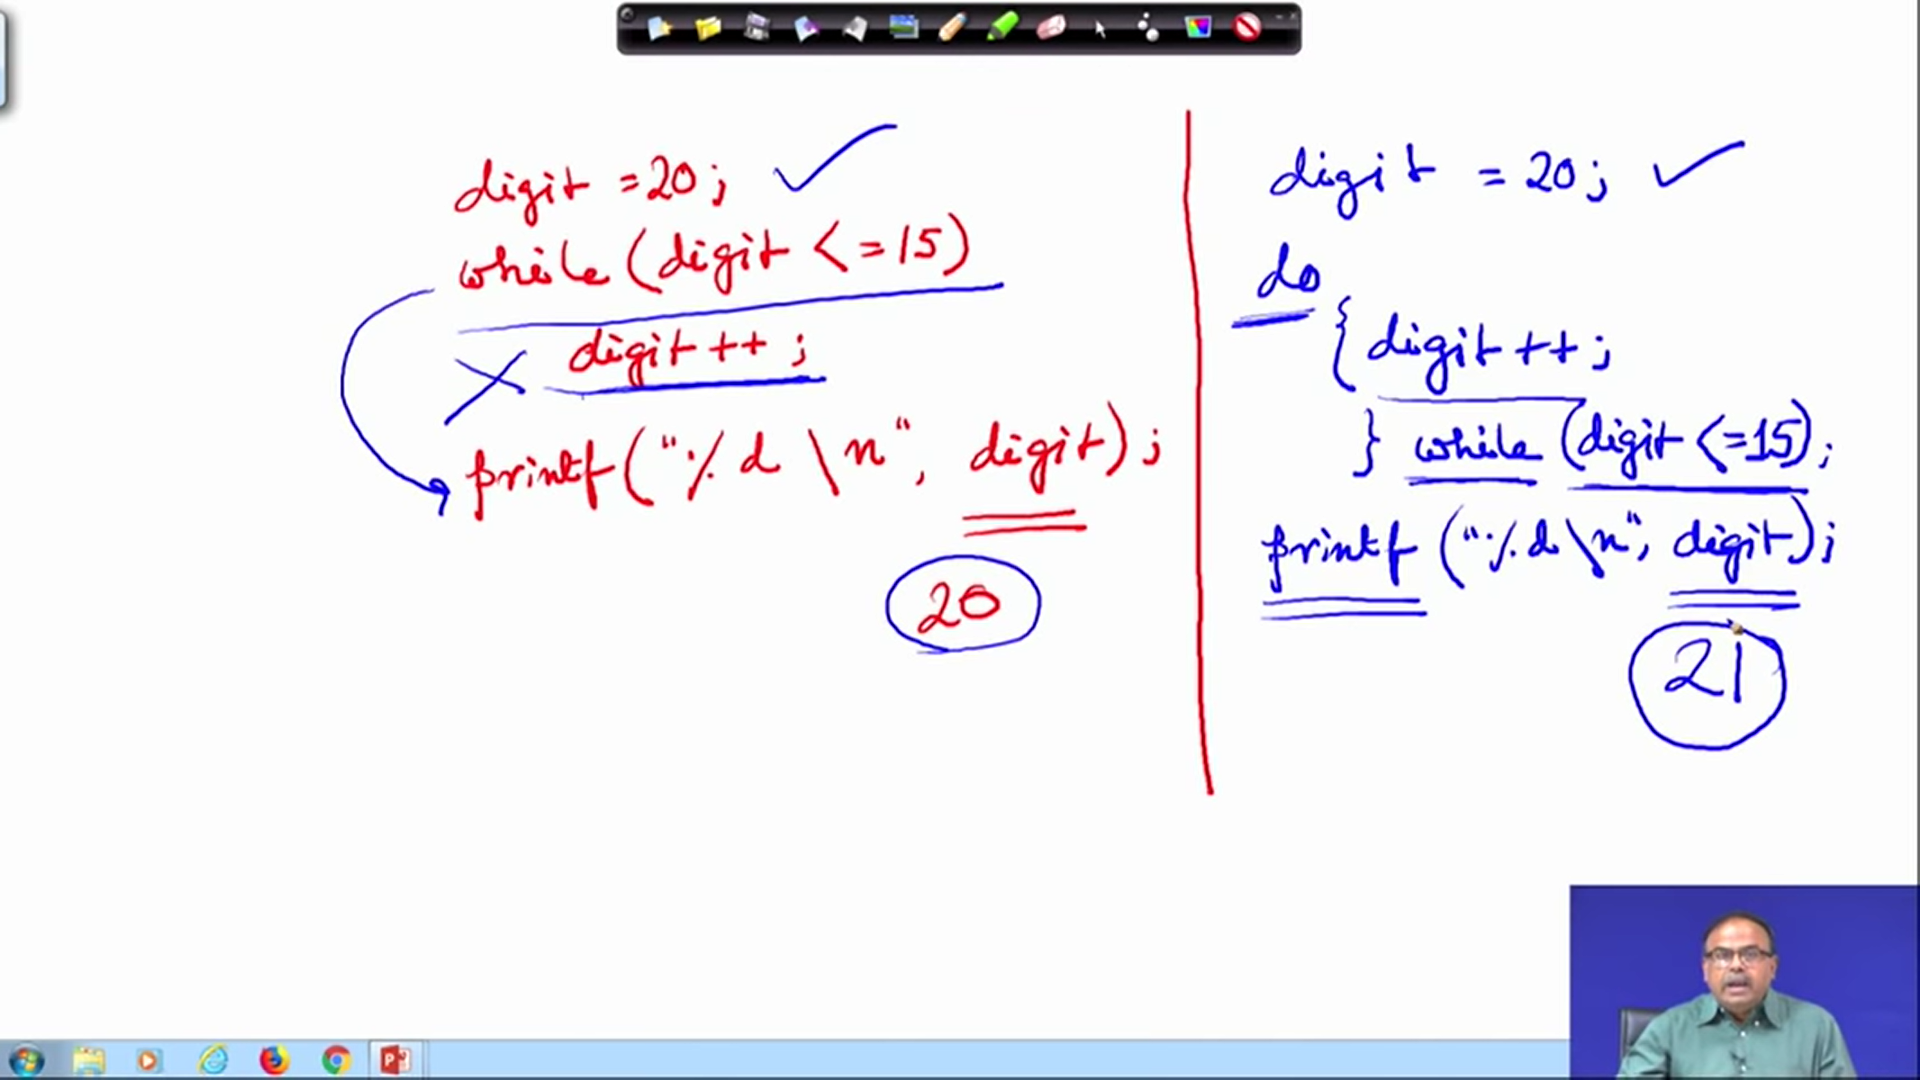 digit = 20;
while (digit <= 15)
digit ++ ;
printf ("% d \n", digit) ;
20
digit = 20;
do
{ digit ++ ;
} while (digit <= 15);
printf ("% d \n", digit);
21